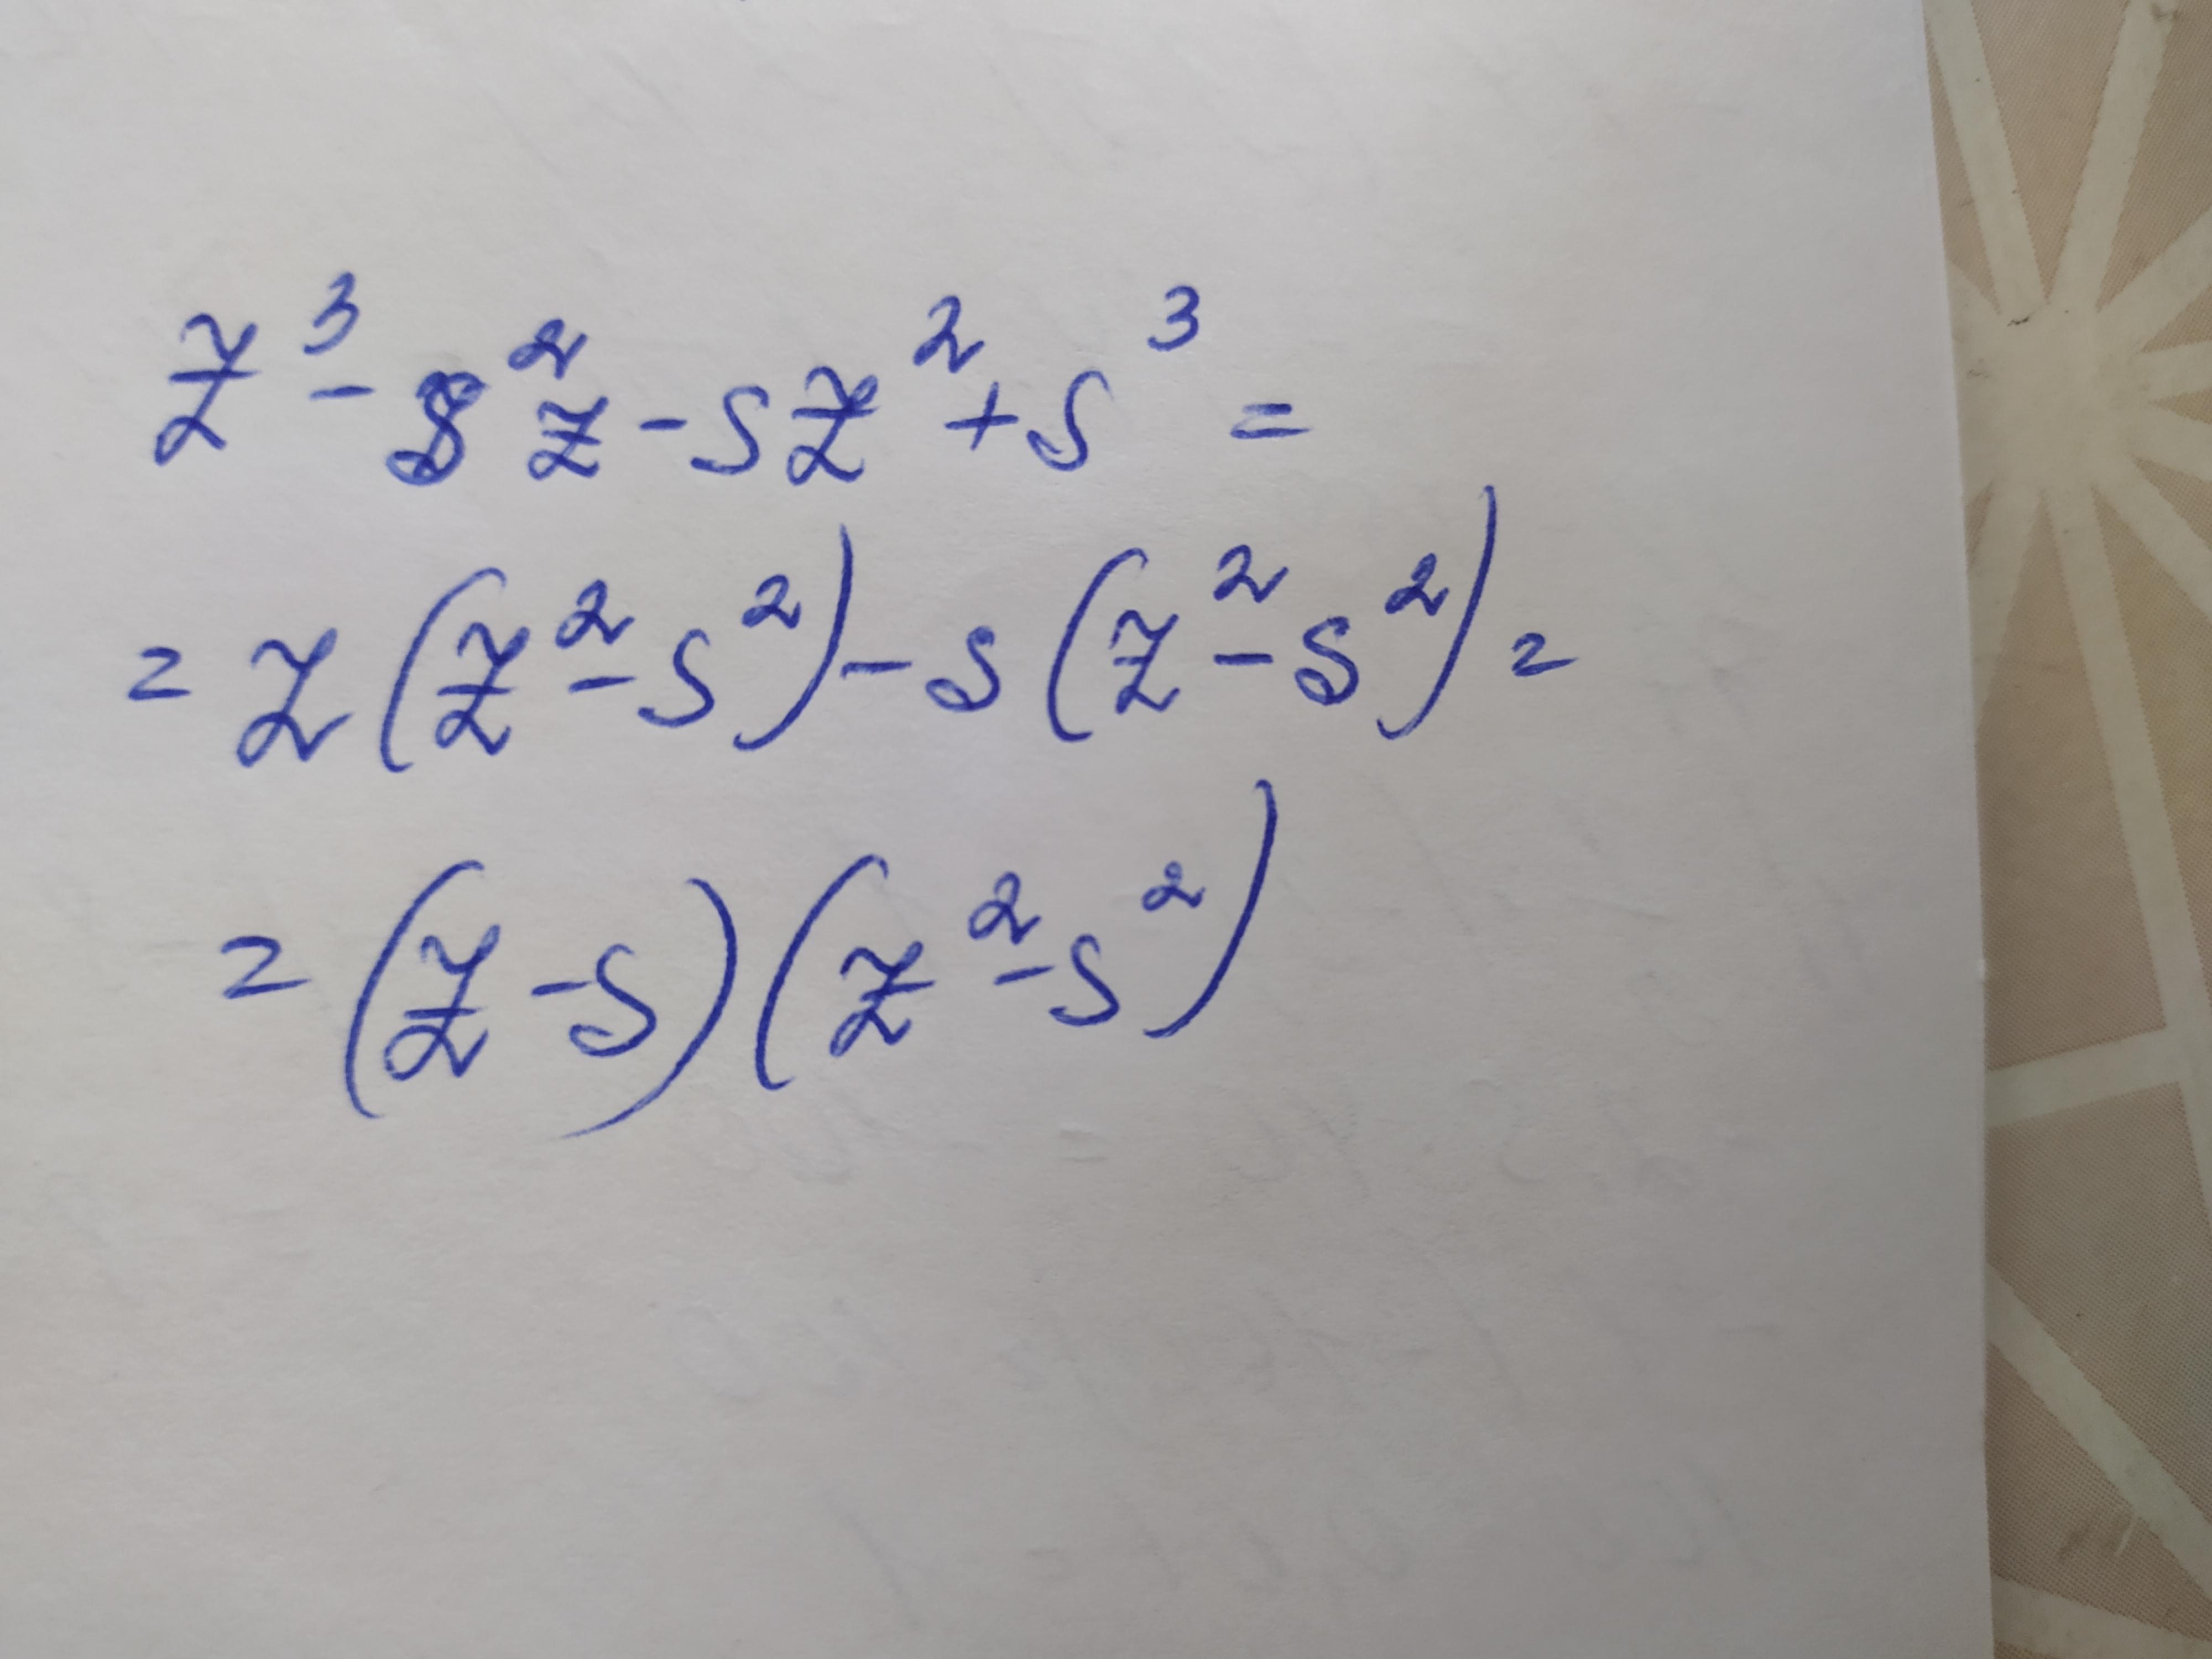 z³ - s²z - sz² + s³ =
= z(z² - s²) - s(z² - s²) =
= (z - s)(z² - s²)